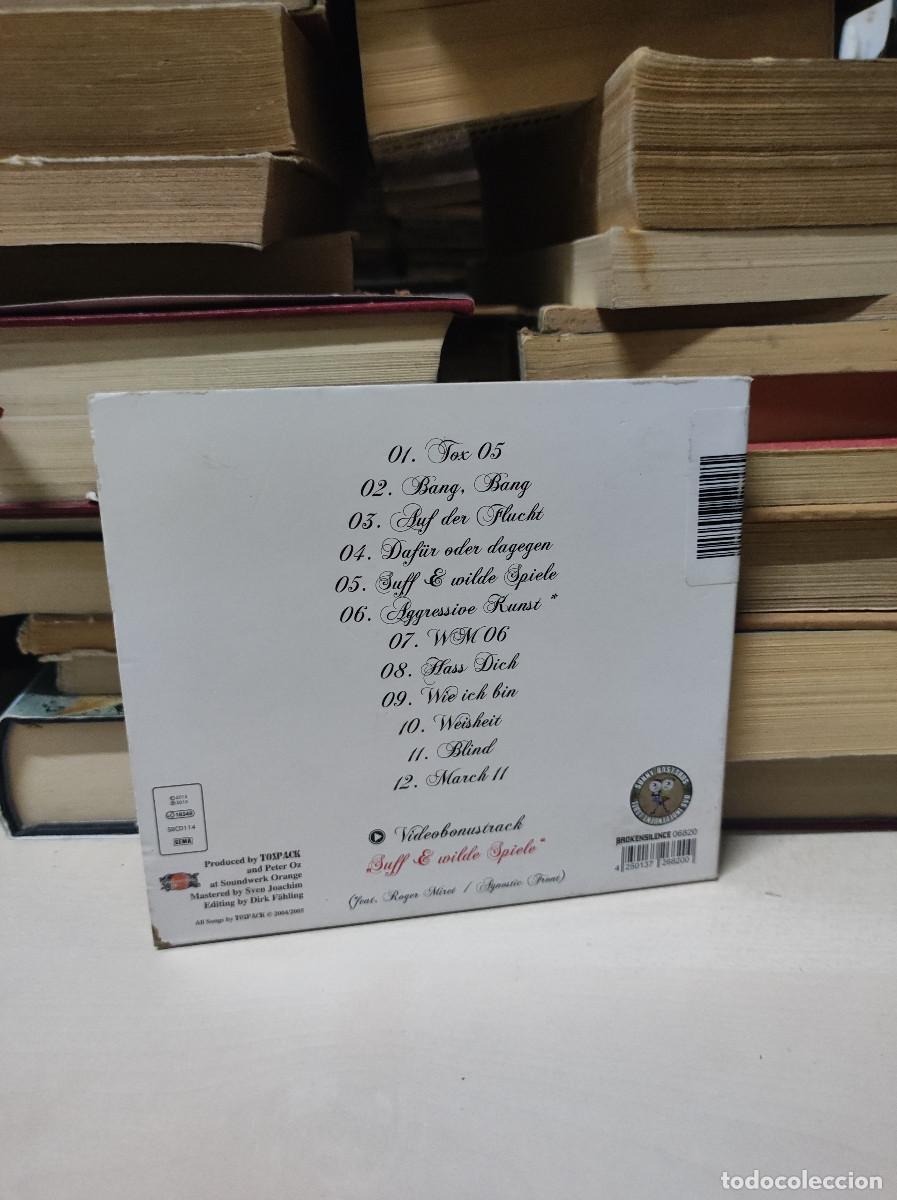 01. Tox 05
02. Bang, Bang
03. Auf der Flucht
04. Dafür oder dagegen
05. Suff & wilde Spiele
06. Aggressive Kunst *
07. WM 06
08. Hass Dich
09. Wie ich bin
10. Weisheit
11. Blind
12. March 11
Videobonustrack
„Suff & wilde Spiele“
(feat. Roger Miret / Agnostic Front)
LC 18248
SBCD114
GEMA
Produced by TOXPACK
and Peter Oz
at Soundwerk Orange
Mastered by Sven Joachim
Editing by Dirk Fähling
All Songs by TOXPACK © 2004/2005
SUNNY BASTARDS
BROKENSILENCE 06820
4 250137 268200
todocoleccion